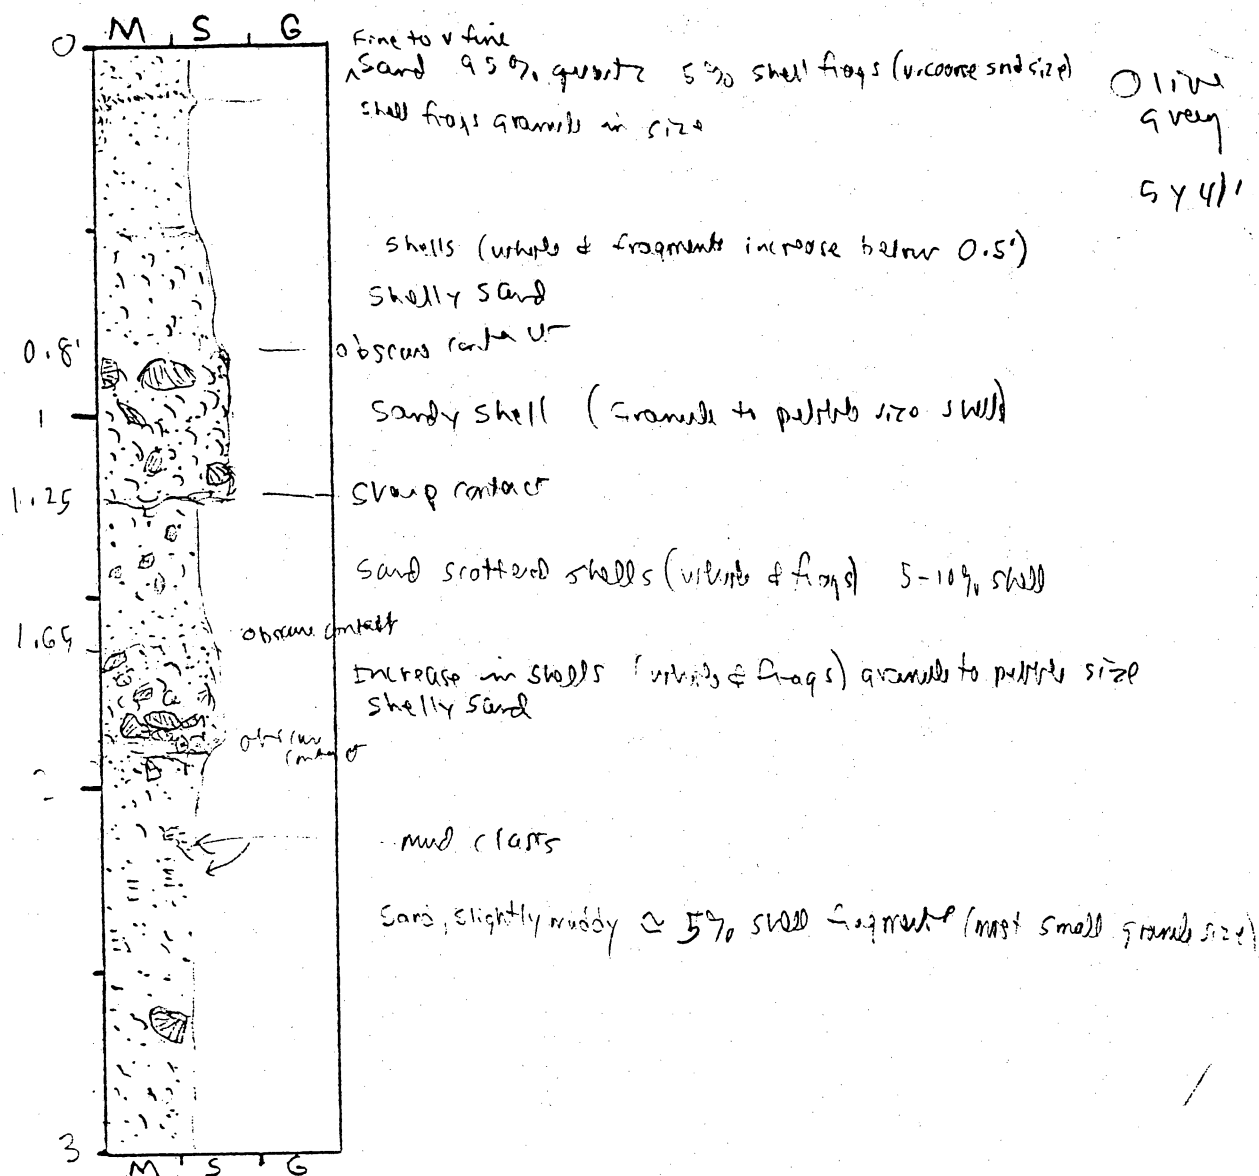 M S G
0
Fine to v fine
^Sand 95% quartz 5% shell frags (v. coarse snd size)
Olive
grey
shell frags granule in size
5 Y 4/1
shells (whole & fragments increase below 0.5')
Shelly sand
0.8'
obscure contact
1
Sandy shell (Granule to pebble size shell)
1.25
Sharp contact
Sand scattered shells (whole & frags) 5-10% shell
1.65
obscure contact
Increase in shells (whole & frags) granule to pebble size
Shelly sand
obscure
contact
mud clasts
Sand, slightly muddy ≃ 5% shell fragments (most small granule size)
3
M S G